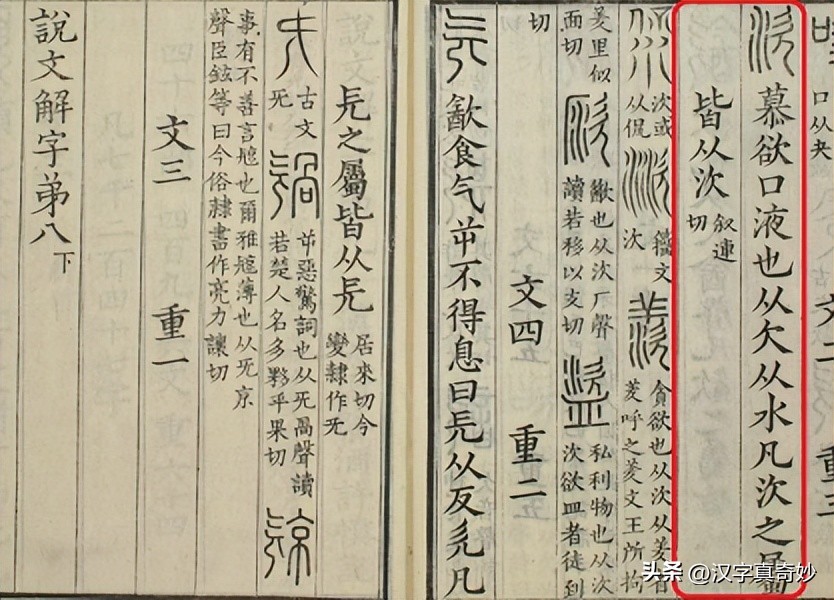 口从夬
文二 重三
慕欲口液也从欠从水凡㳄之屬
皆从㳄 叙連切
㳄或从侃 籒文㳄 貪欲也从㳄从羑省羑呼之羑文王所拘
羑里似面切 歠也从㳄厂聲讀若移以支切 私利物也从㳄㳄欲皿者徒到
切 文四 重二
㱃食气屰不得息曰旡从反欠凡
旡之屬皆从旡 居未切今變隷作旡
古文旡 屰惡驚詞也从旡咼聲讀若楚人名多夥乎果切
事有不善言㹁也爾雅㹁薄也从旡京聲臣鉉等曰今俗隷書作亮力讓切
文三 重一
說文解字弟八下
头条 @汉字真奇妙